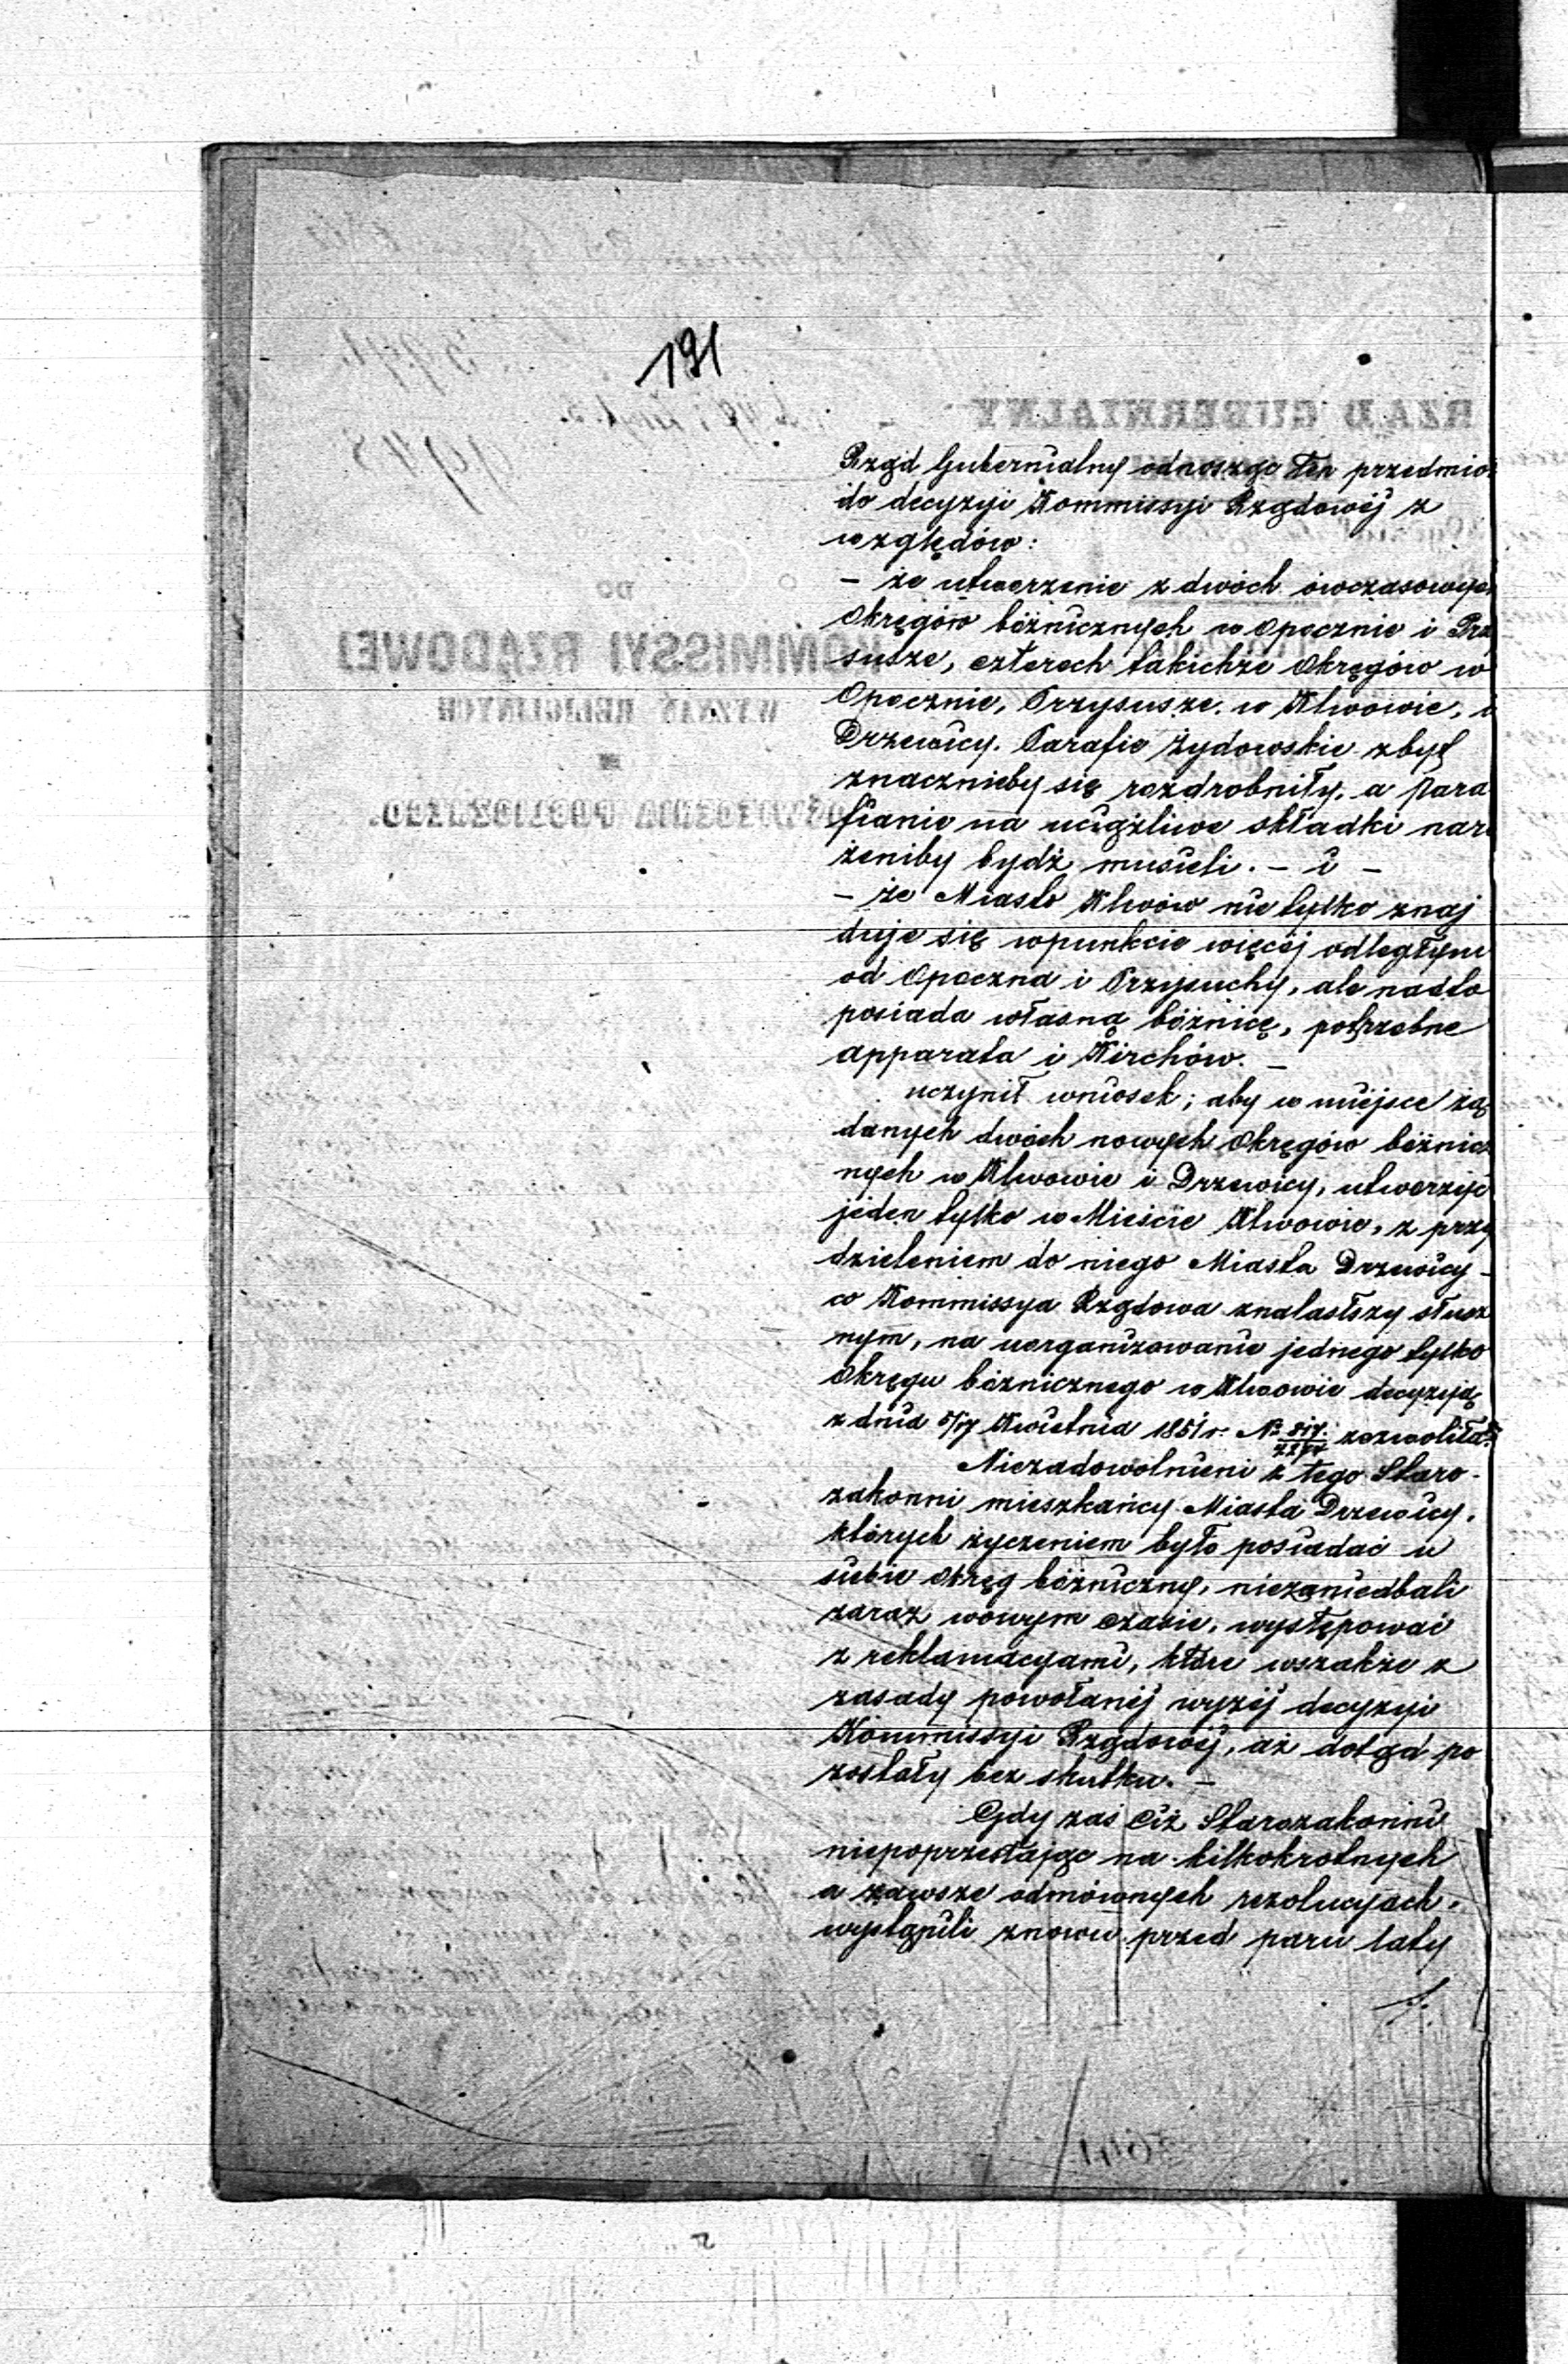 191
Rząd Gubernialny odnosząc ten przedmio
do decyzyi Kommissyi Rządowéj z
względów:
– że utworzenie z dwóch ówczasowych
Okręgów bóżnicznych w Opocznie i Prz
susze, czterech takichże Okręgów w
Opocznie, Przysusze, w Klwowie, i
Drzewicy. Parafie Żydowskie zbyt
znacznieby się rozdrobniły, a para
fianie na uciążliwe składki nara
żeniby bydź musieli. – i –
– że Miasto Klwów nie tylko znaj
duje się w punkcie więcéj odległym
od Opoczna i Przysuchy, ale nadto
posiada własną bóżnicę, potrzebne
apparata i Kirchów. –
uczynił wniosek; aby w miéjsce żą
danych dwóch nowych Okręgów bóżnic
nych w Klwowie i Drzewicy, utworzyć
jeden tylko w Mieście Klwowie, z przy
dzieleniem do niego Miasta Drzewicy –
co Kommissya Rządowa znalastszy słusz
nym, na uorganizowanie jednego tylko
Okręgu bóżnicznego w Klwowie decyzyją
z dnia 5/17 Kwietnia 1851 r. № zezwoliła.
Niezadowolnieni z tego Staro-
zakonni mieszkańcy Miasta Drzewicy,
których życzeniem było posiadać u
siebie Okręg bóżniczny, niezaniedbali
zaraz wówym czasie, występować
z reklamacyami, które wszakże z
zasady powołanéj wyżéj decyzyi
Kommissyi Rządowéj, aż dotąd po
zostały bez skutku. –
Gdy zaś Ciż Starozakonni
niepoprzestając na kilkokrotnych
a zawsze odmównych rezolucyach,
wystąpili znowu przed paru laty